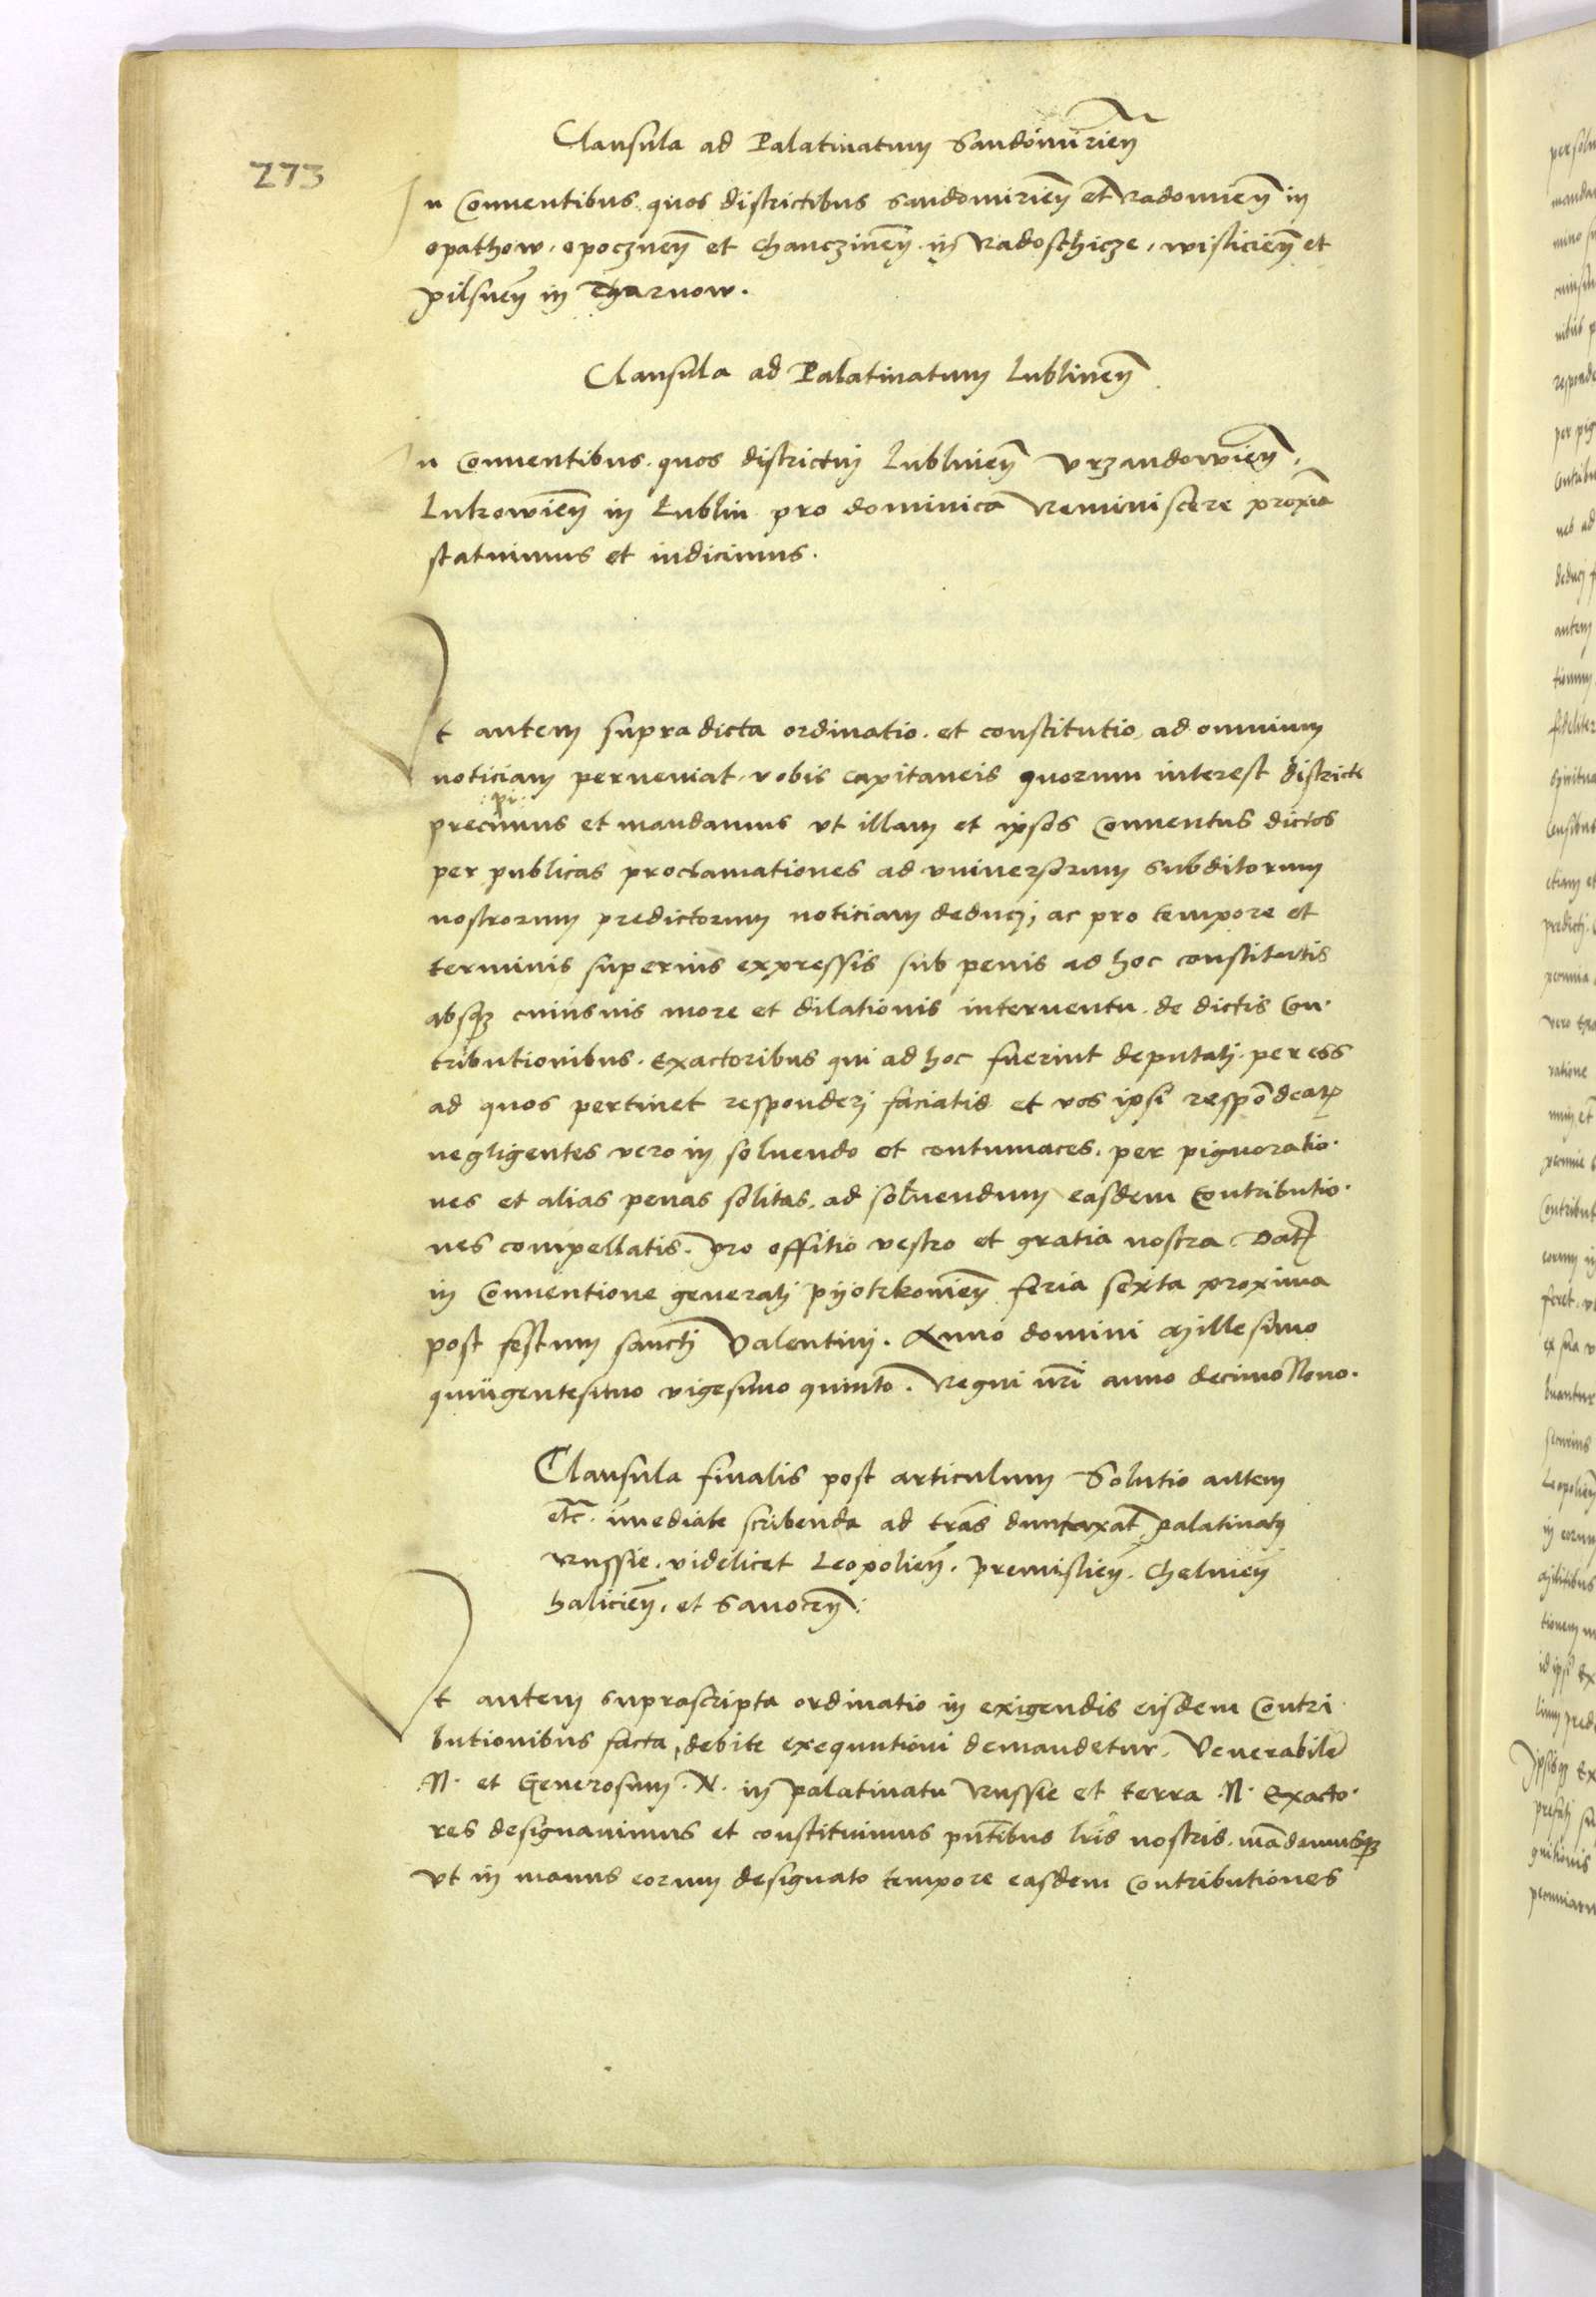 Clausula ad Palatinatum Sandomirien̄
273
In Conuentibus quos districtibus Sandomirien̄ et Radomien̄ in
opathow, opocznen̄ et Chanczinen̄ in Radoschicze, wislicien̄ et
pilsnen̄ in Tharnow.
Clausula ad Palatinatum Lublinen̄
In Conuentibus quos districtui Lublinen̄ Vrzandowien̄,
Lukowien̄ in Lublin pro dominica Reminiscere proxīa
statuimus et indicimus.
Vt autem supradicta ordinatio et constitutio ad omnium
noticiam perueniat, vobis capitaneis quorum interest districte
:pi:
precimus et mandamus vt illam et ipsos Conuentus dictos
per publicas proclamationes ad vniuersorum subditorum
nostrorum predictorum noticiam deducj, ac pro tempore et
terminis superius expressis sub penis ad hoc constitutis
absqȝ cuiusuis more et dilationis interuentu de dictis Con-
tributionibus Exactoribus qui ad hoc fuerint deputatj per eos
ad quos pertinet responderj faciatis et vos ipsi respōdeatꝭ
negligentes vero in soluendo et contumaces, per pignoratio-
nes et alias penas solitas, ad soluendum easdem Contributio-
nes compellatis. pro offitio vestro et gratia nostra Datꝭ
in Conuentione generalj pijotrkouien̄ feria sexta proxima
post festum sanctj Valentini. Anno domini Millesimo
quingentesimo vigesimo quinto. Regni nr̄i anno decimo Nono.
Clausula finalis post articulum Solutio autem
etc̄. īmediate scribenda ad trās duntaxat palatinatꝰ
Russie, videlicet Leopolien̄. Premislien̄. Chelmen̄
halicien̄, et Sanocen̄:
Vt autem suprascripta ordinatio in exigendis eisdem Contri-
butionibus facta, debite exequutioni demandetur, Venerabilē
.N. et Generosum .N. in palatinatu Russie et terra .N. Exacto-
res designauimus et constituimus pn̄tibus lr̄is nostris, mādamusqȝ
vt in manus eorum designato tempore easdem Contributiones